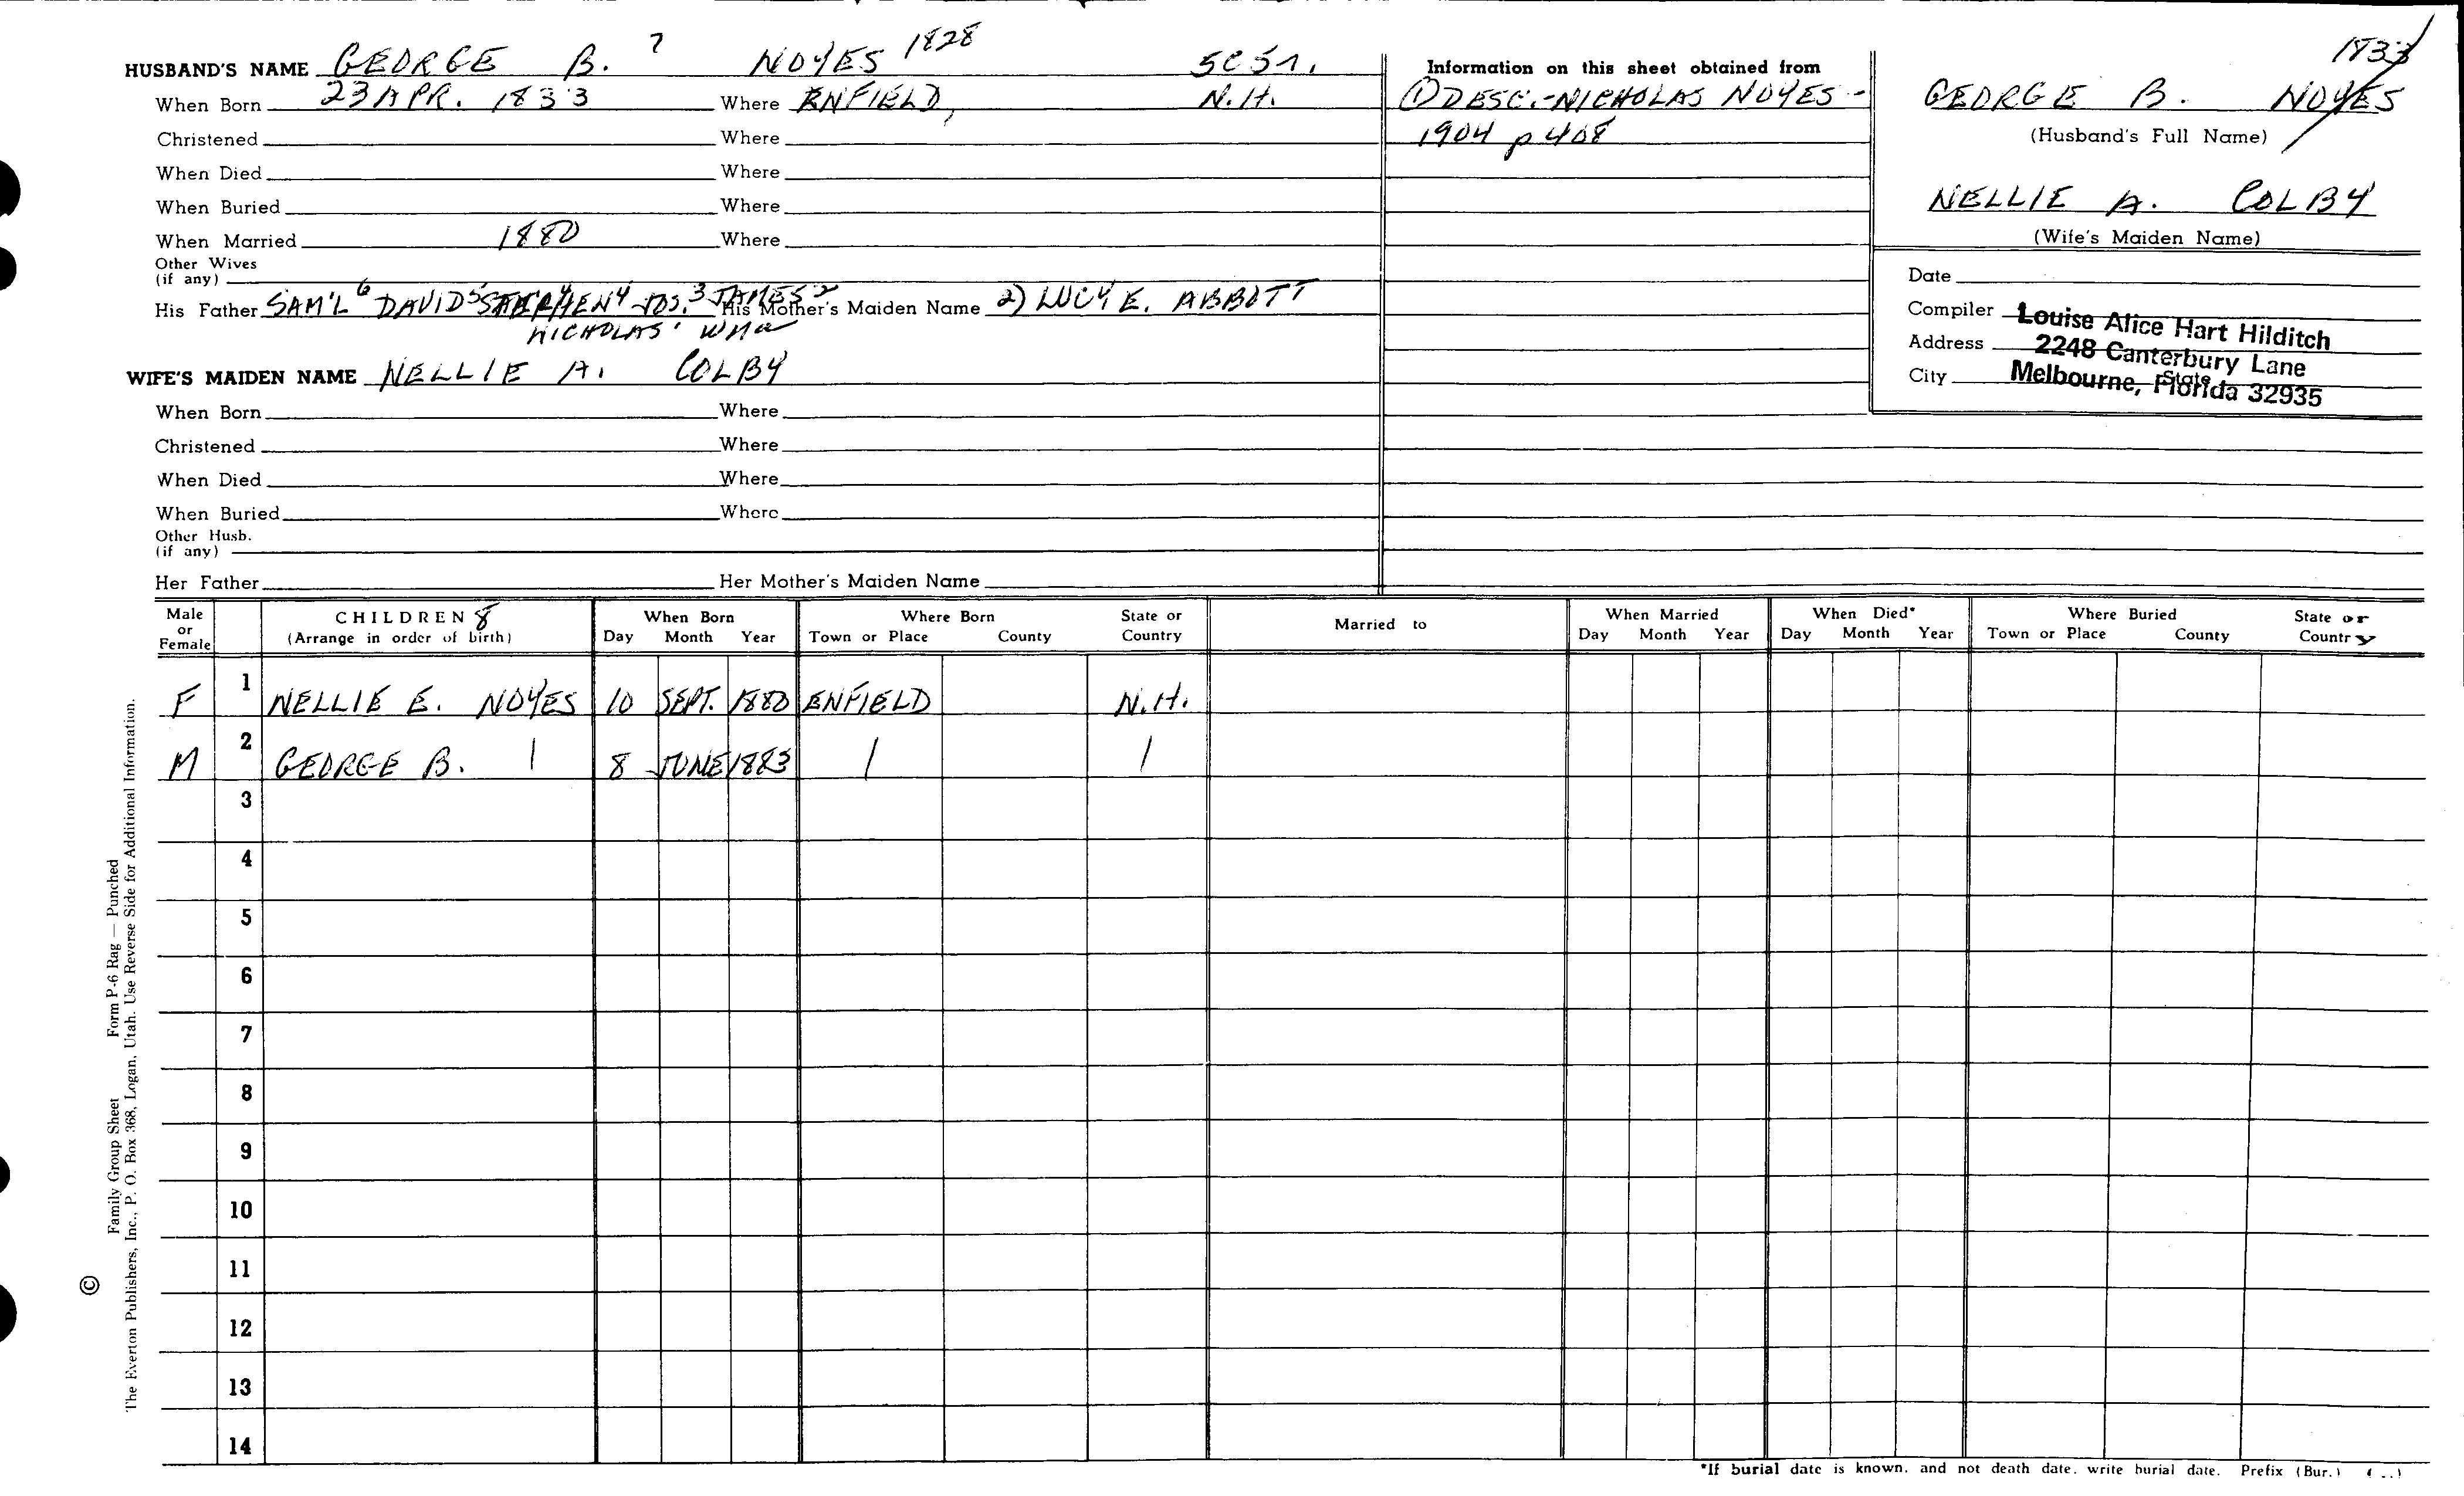 HUSBAND'S NAME GEORGE B. 7 NOYES 1828 5C51.
When Born 23 APR. 1833 Where ENFIELD, N.H.
Christened Where
When Died Where
When Buried Where
When Married 1880 Where
Other Wives
(if any)
His Father SAM'L 6 DAVID 5 STEPHEN 4 JOS. 3 JAMES 2 His Mother's Maiden Name 2) LUCY E. ABBOTT
NICHOLAS 1 WM a
WIFE'S MAIDEN NAME NELLIE A. COLBY
When Born Where
Christened Where
When Died Where
When Buried Where
Other Husb.
(if any)
Her Father Her Mother's Maiden Name
Information on this sheet obtained from
① DESC.-NICHOLAS NOYES -
1904 p 408
1833
GEORGE B. NOYES
(Husband's Full Name)
NELLIE A. COLBY
(Wife's Maiden Name)
Date
Compiler Louise Alice Hart Hilditch
Address 2248 Canterbury Lane
City State Melbourne, Florida 32935
Male or Female CHILDREN 8 (Arrange in order of birth) When Born Day Month Year Where Born Town or Place County State or Country Married to When Married Day Month Year When Died* Day Month Year Where Buried Town or Place County State or Country
F 1 NELLIE E. NOYES 10 SEPT. 1880 ENFIELD N.H.
M 2 GEORGE B. | 8 JUNE 1883 | |
3
4
5
6
7
8
9
10
11
12
13
14
*If burial date is known, and not death date, write burial date. Prefix (Bur.)
© Family Group Sheet Form P-6 Rag — Punched
The Everton Publishers, Inc., P. O. Box 368, Logan, Utah. Use Reverse Side for Additional Information.